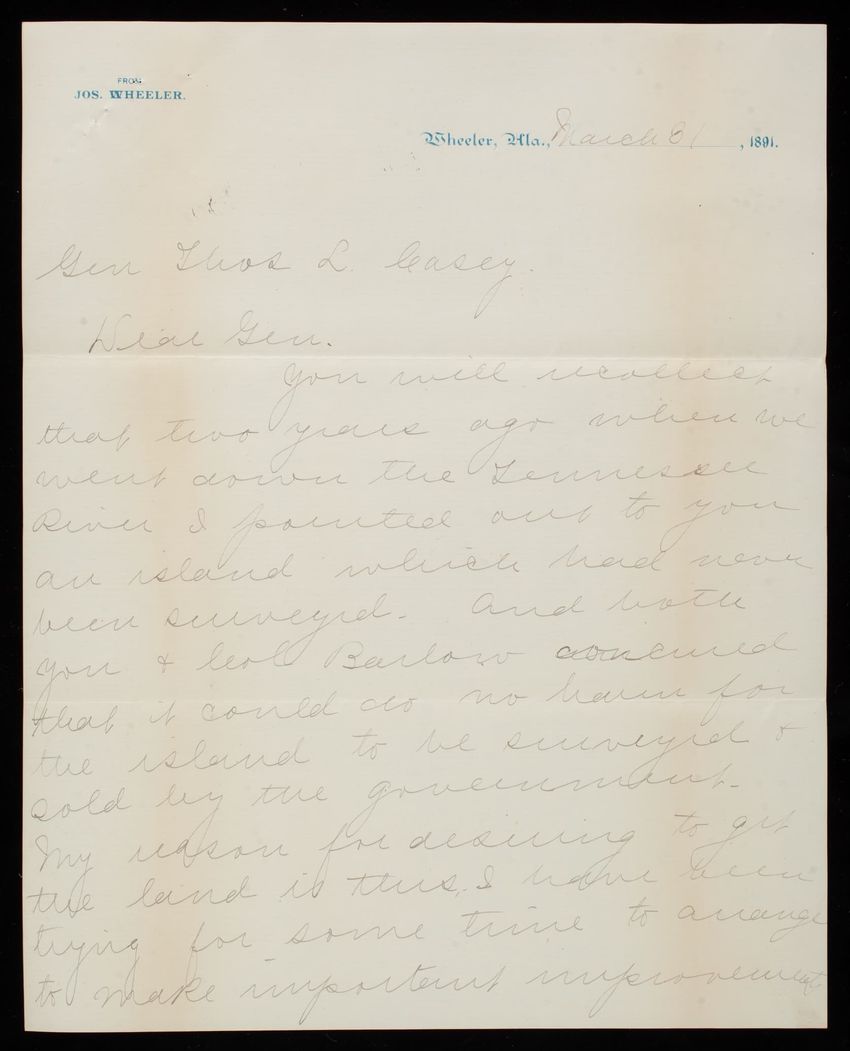 FROM
JOS. WHEELER.
Wheeler, Ala., March 31, 1891.
Gen Thos L. Casey.
Dear Gen.
You will recollect
that two years ago when we
went down the Tennessee
River I pointed out to you
an island which had never
been surveyed. And both
you & Col Barlow concured
that it could do no harm for
the island to be surveyed &
sold by the government.
My reason for desiring to get
the land is this, I have been
trying for some time to arange
to make important improvements